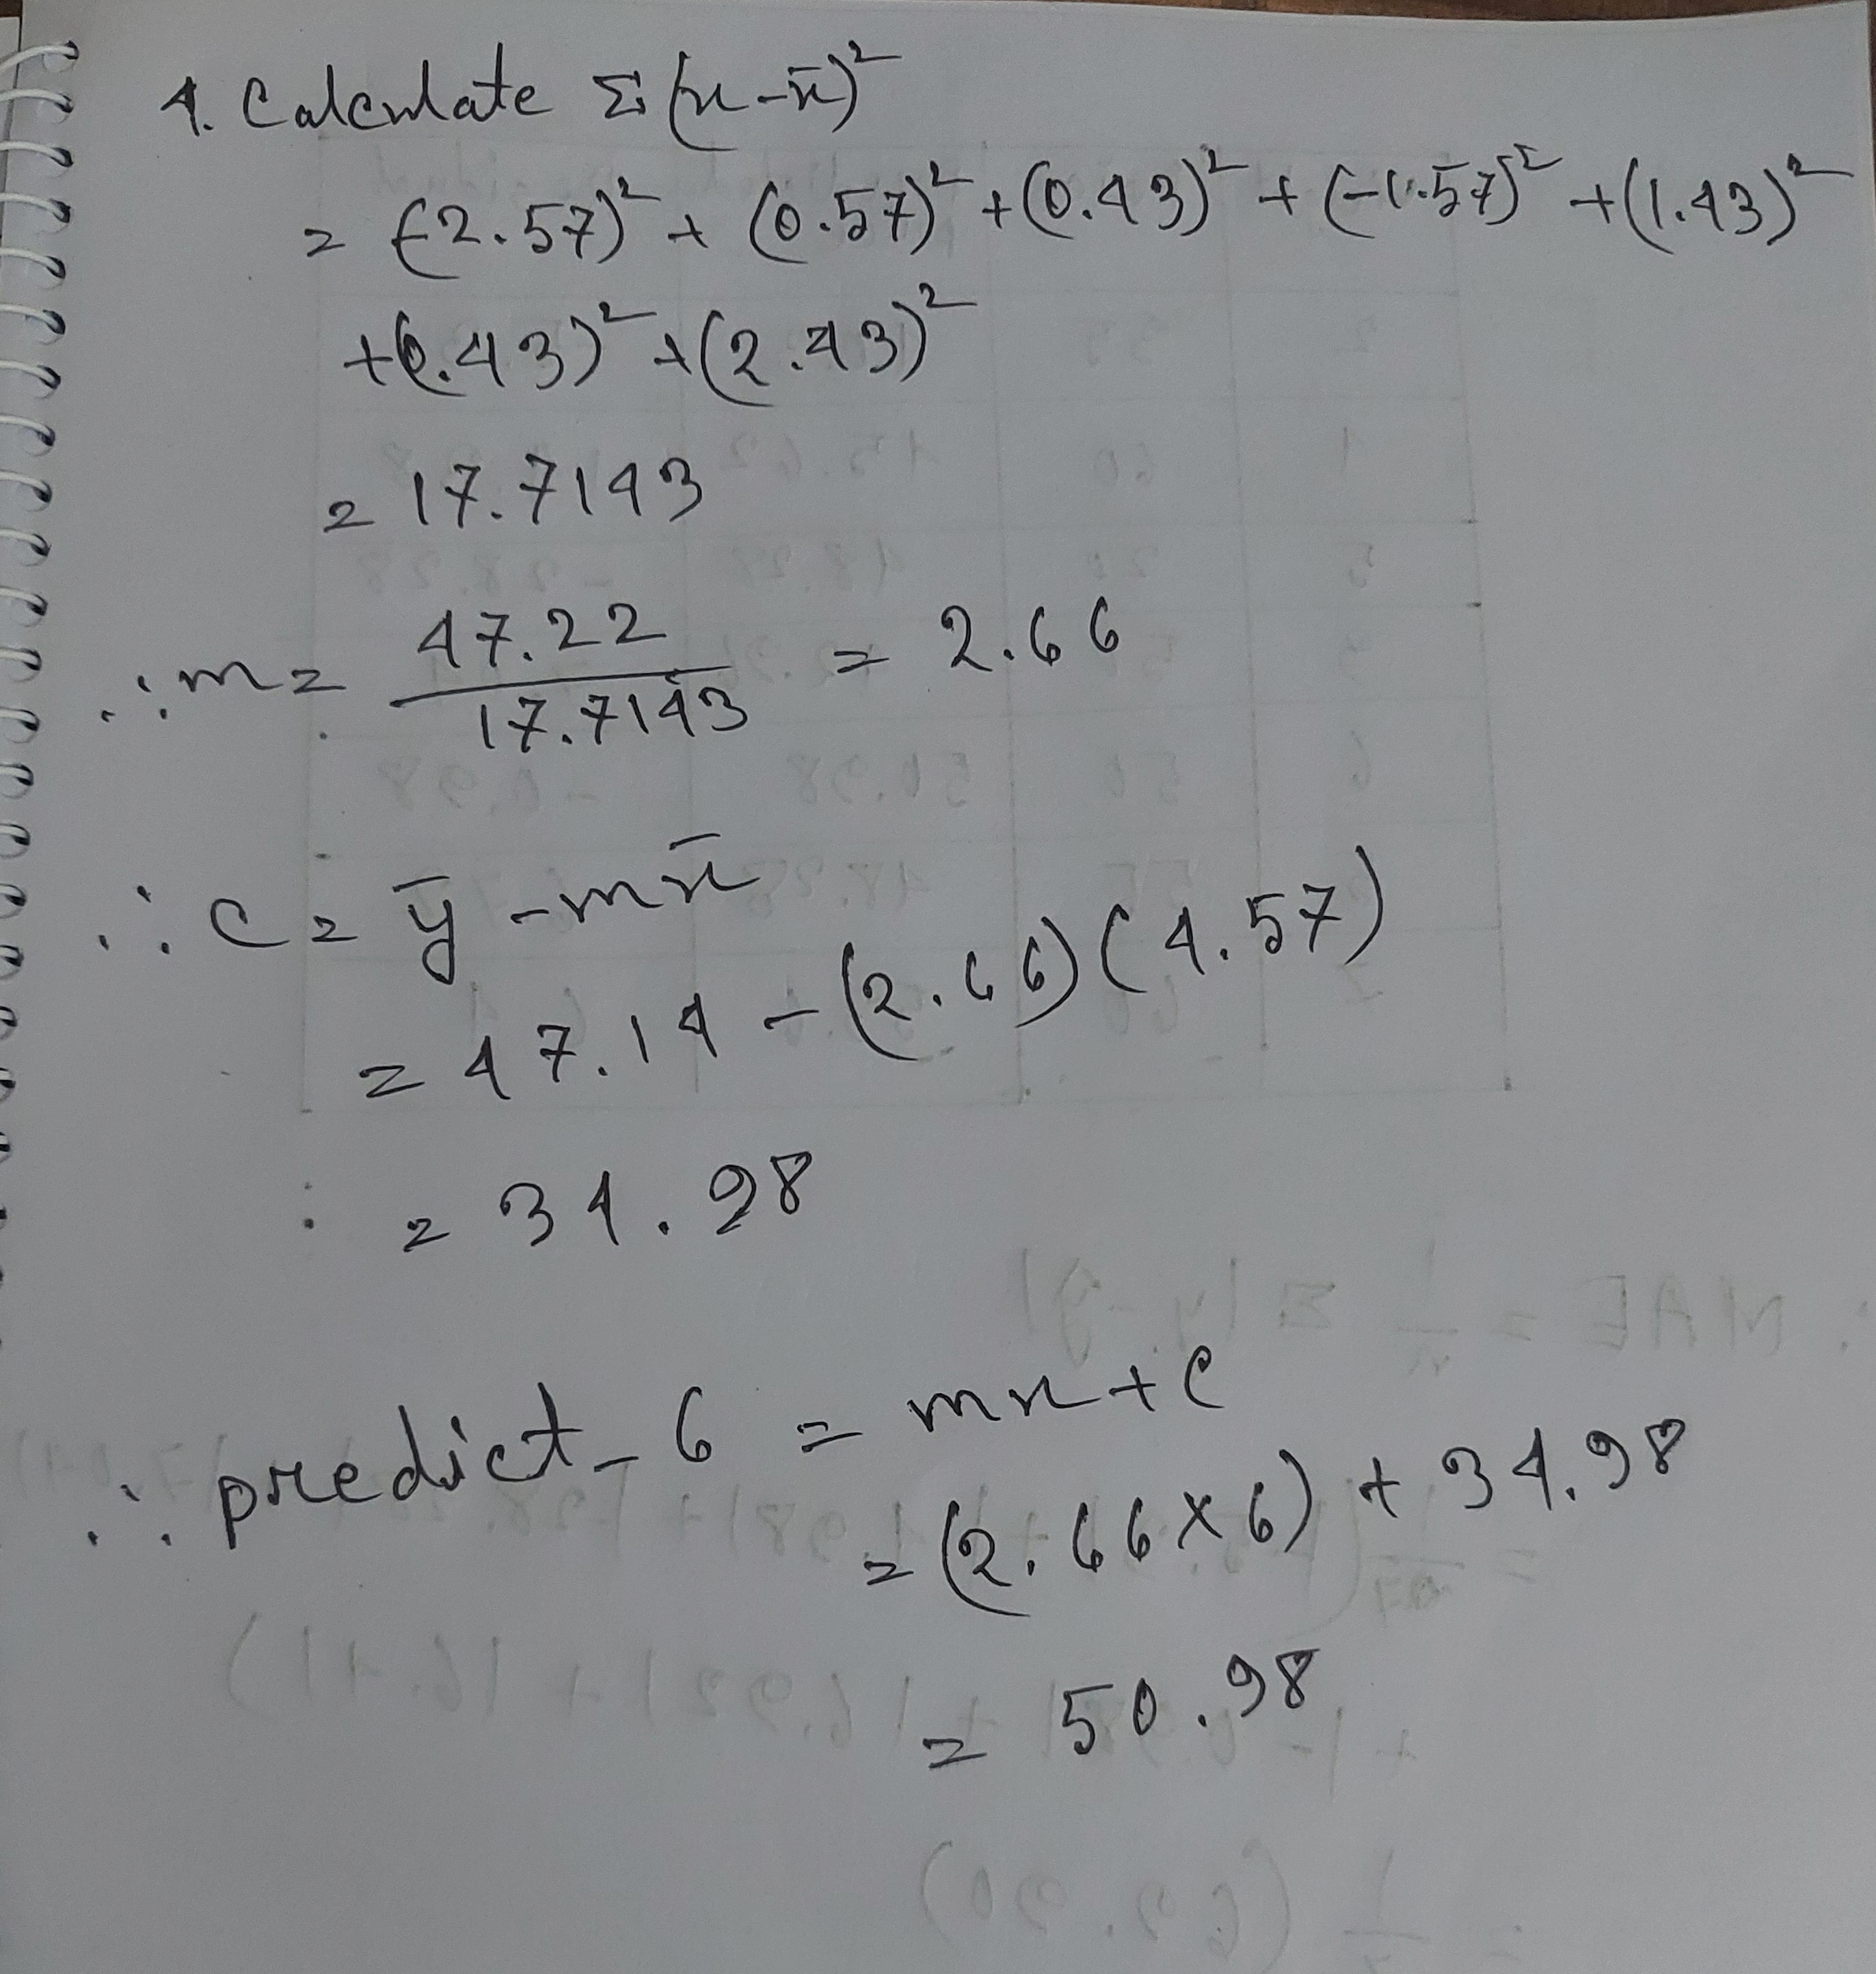 4. Calculate Σ(x-x̄)²
= (-2.57)² + (0.57)² + (0.43)² + (-1.57)² + (1.43)²
+(0.43)² + (2.43)²
= 17.7143
∴ m = 47.22 / 17.7143 = 2.66
∴ c = ȳ - mx̄
= 47.14 - (2.66)(4.57)
= 34.98
∴ predict_6 = mx + c
= (2.66 × 6) + 34.98
= 50.98